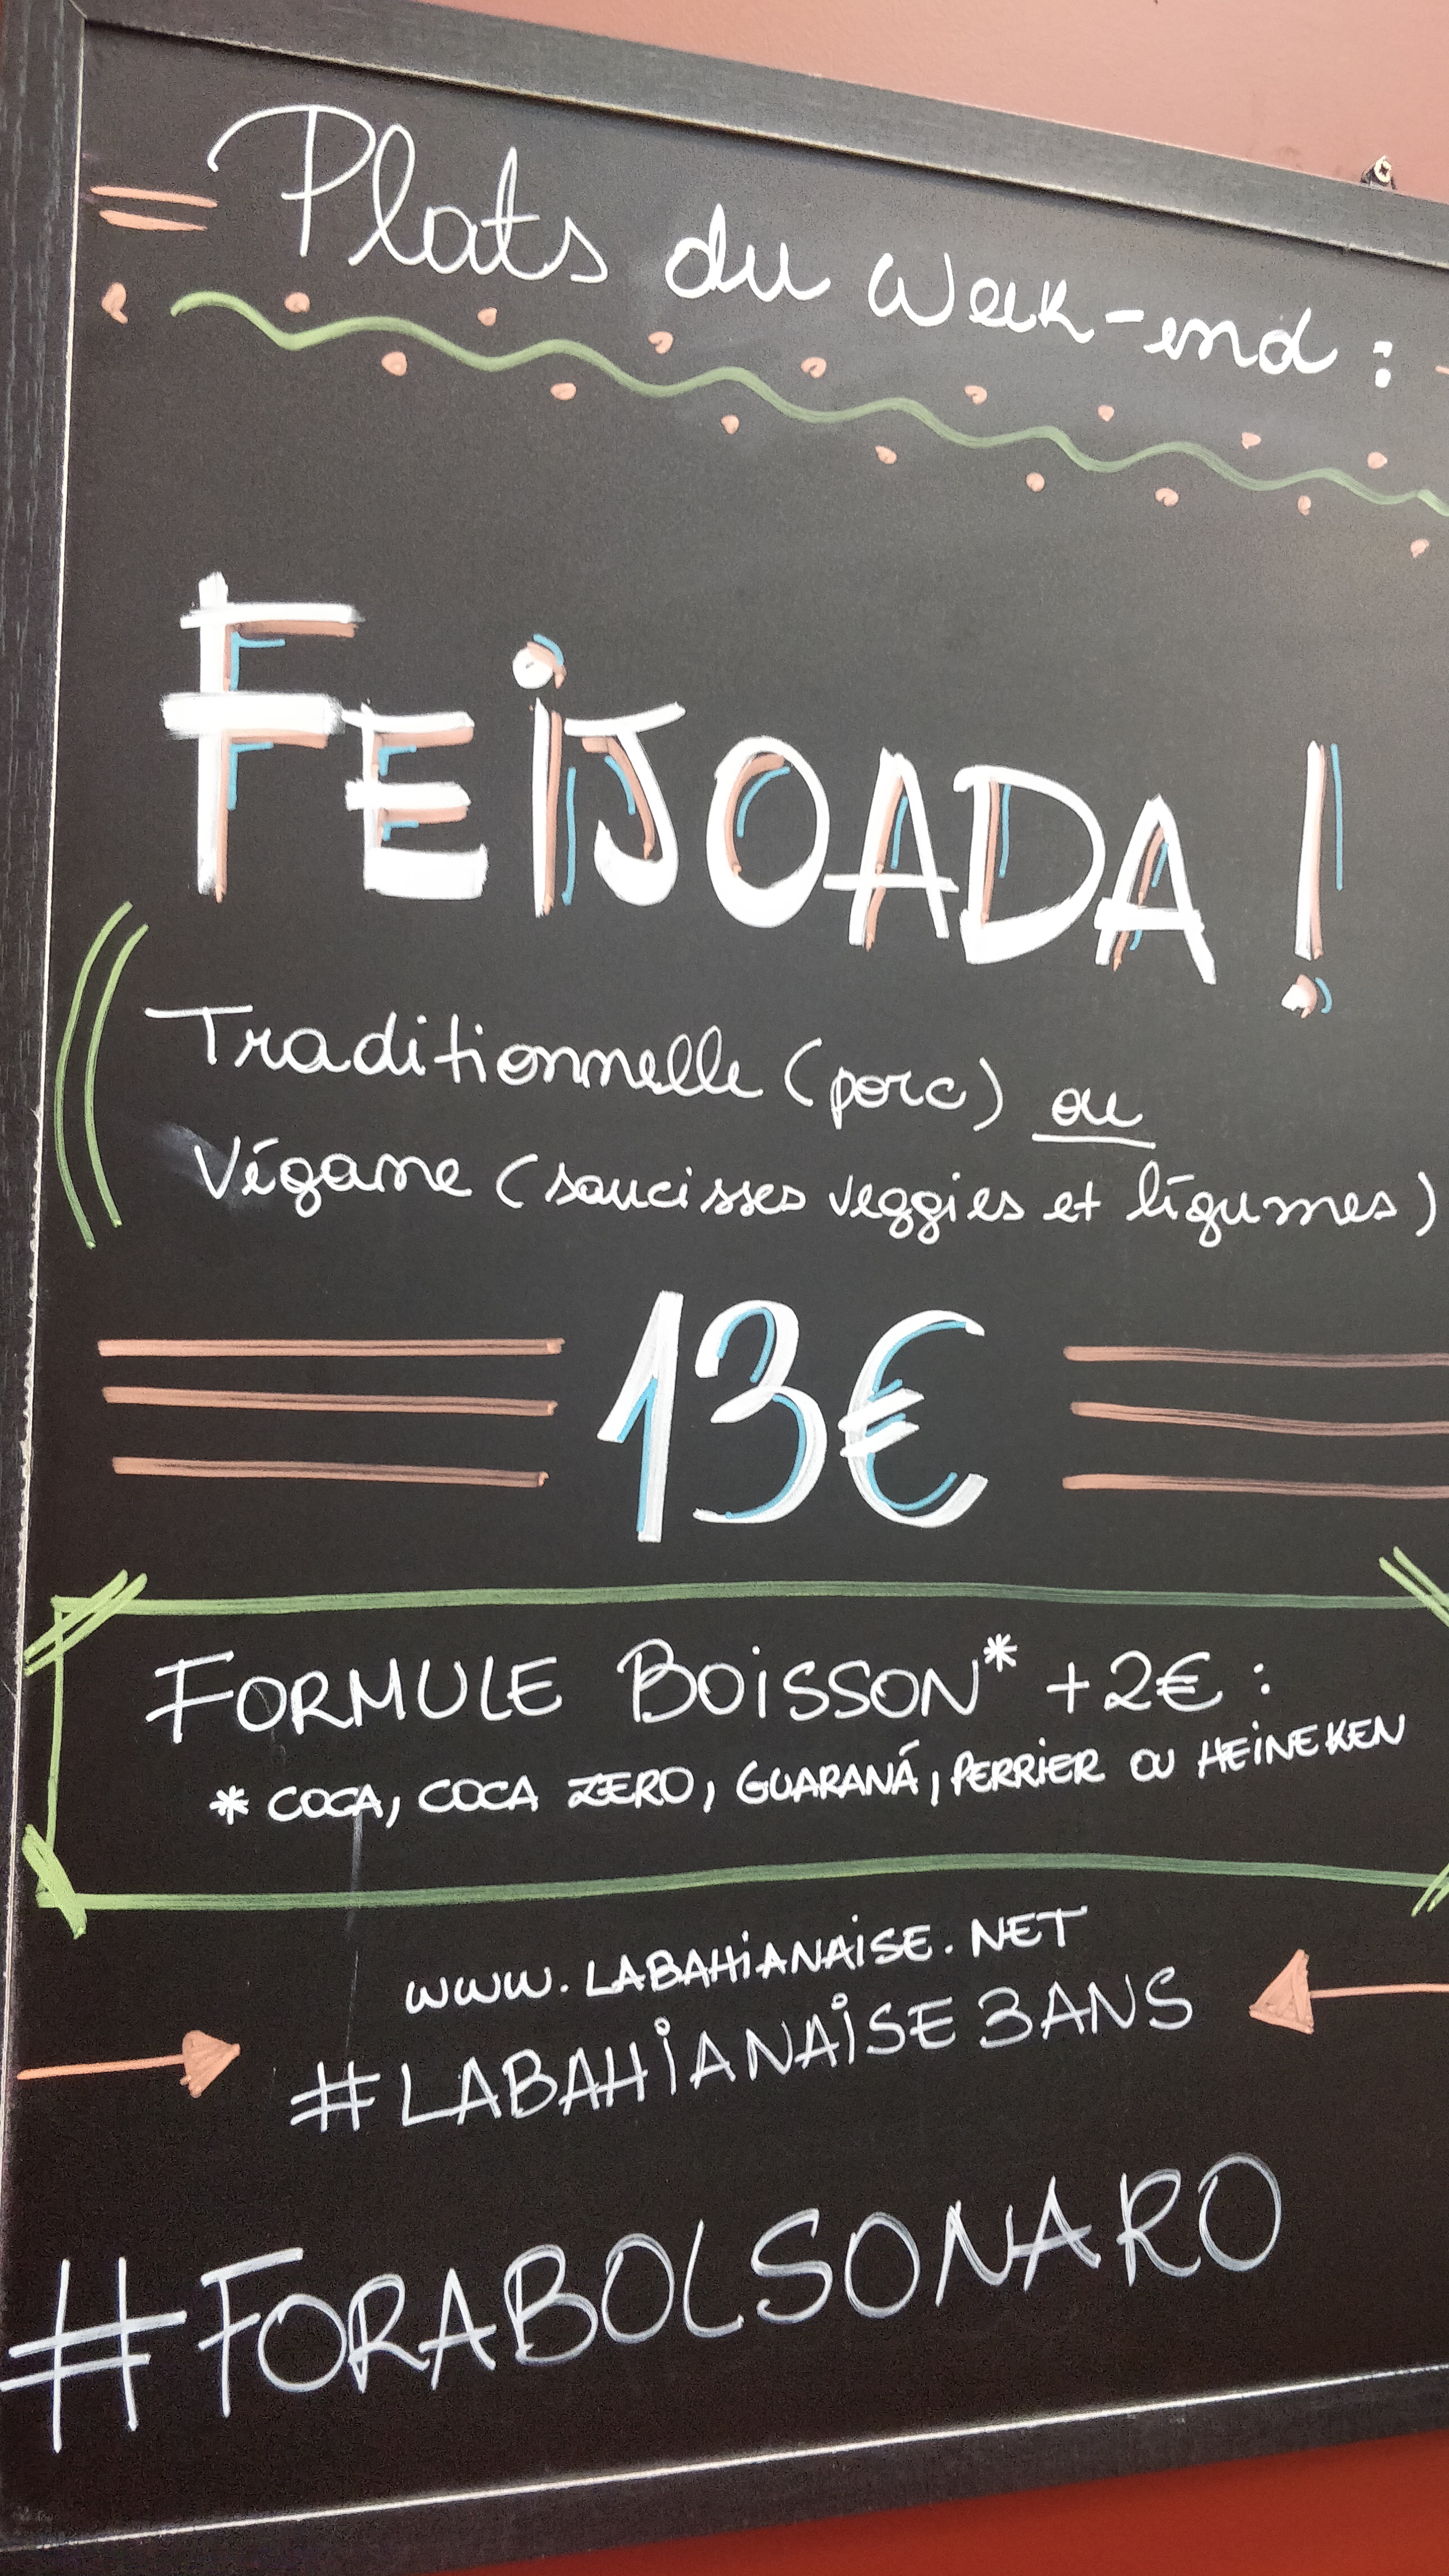 Plats du Week-end :
FEiJOADA !
Traditionnelle (porc) ou
Végane (saucisses veggies et légumes)
13€
FORMULE BOiSSON* +2€ :
* COCA, COCA ZERO, GUARANÁ, PERRIER OU HEINEKEN
WWW.LABAHiANAiSE.NET
#LABAHiANAiSE3ANS
#FORABOLSONARO